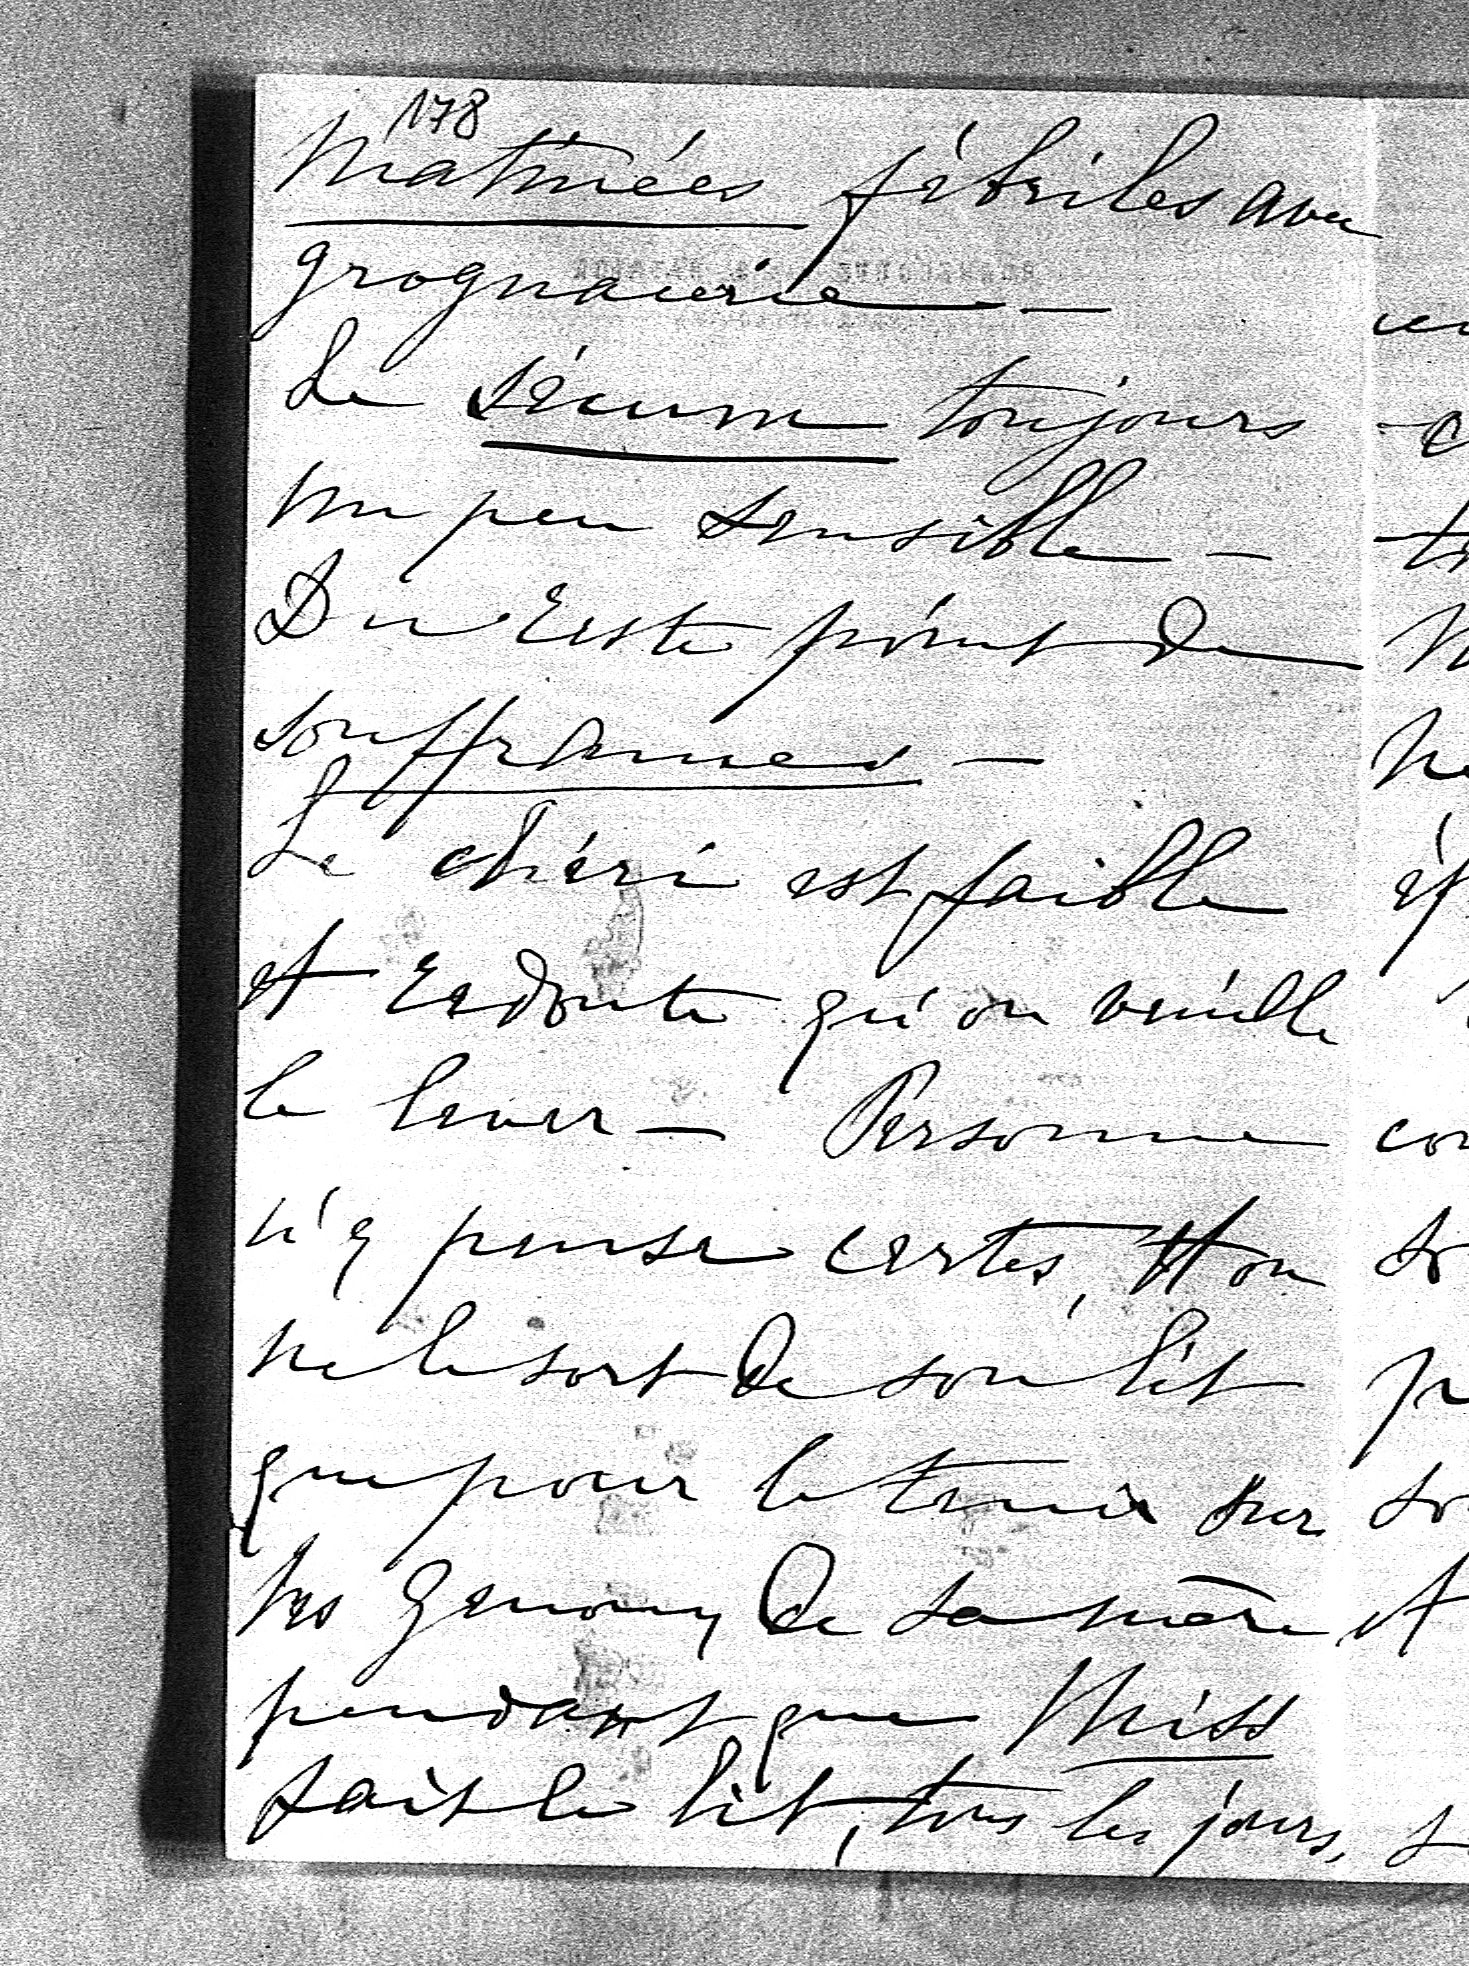 178
Matinées fébriles avec
grognaierie —
Le sécum toujours
un peu sensible —
Du reste point de
souffrances —
Le chéri est faible
et redoute qu'on veuille
le lever — Personne
n'y pense certes, et on
ne le sort de son lit
que pour le tenir sur
les genoux de sa mère
pendant que Miss
fait le lit, tous les jours,